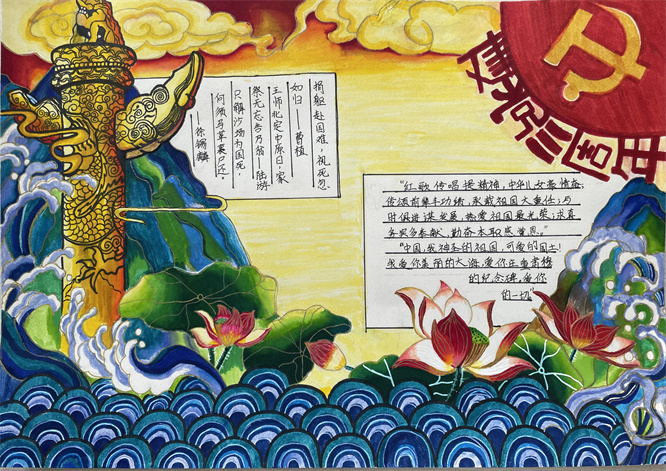 建党
周年
捐躯赴国难,视死忽
如归——曹植
王师北定中原日,家
祭无忘告乃翁——陆游
只解沙场为国死
何须马革裹尸还。
——徐锡麟
“红歌传唱提精神,中华儿女豪情奋;
传颂前辈丰功绩,承载祖国大重任;与
时俱进谋发展,热爱祖国最光荣;求真
务实多奉献,勤奋本职感党恩。”
“中国,我神圣的祖国,可爱的国土!
我爱你美丽的大海,爱你庄重肃穆
的纪念碑,爱你
的一切